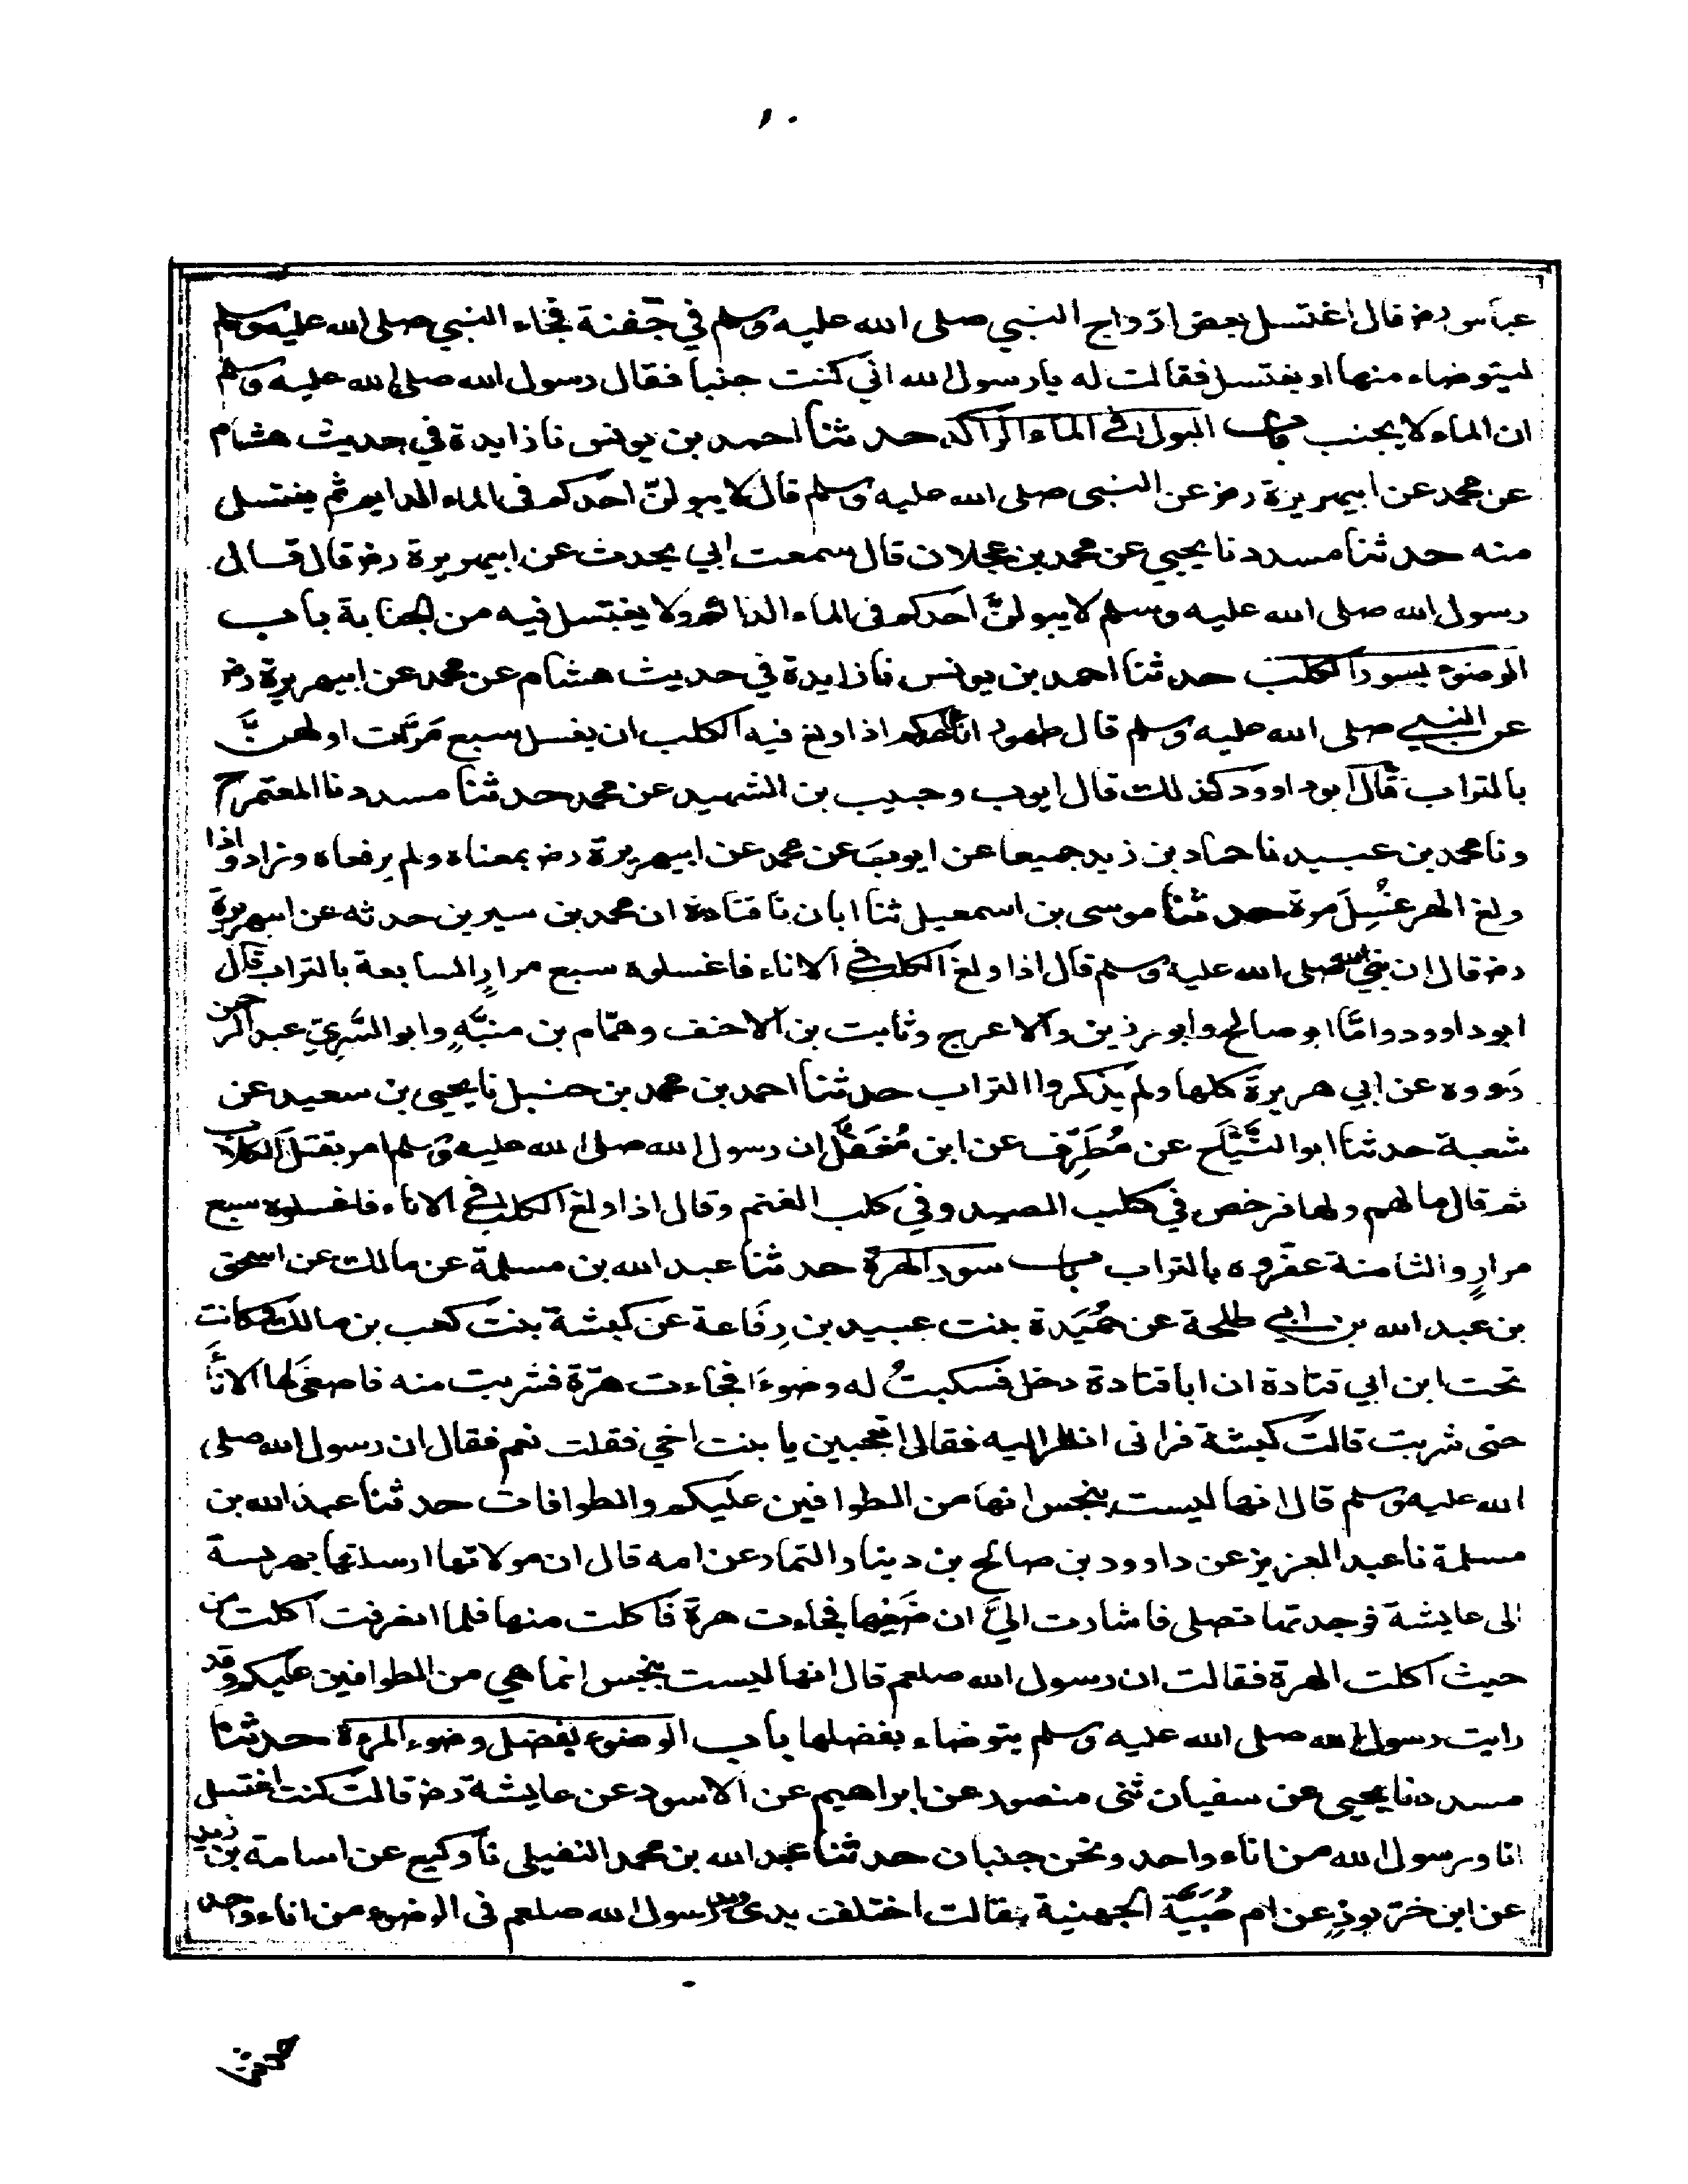 ١٠
عباس رضـ قال اغتسل بعض ازواج النبي صلى الله عليه وسلم في جَفنة فجاء النبي صلى الله عليه وسلم
ليتوضاء منها او يغتسل فقالت له يا رسول الله اني كنت جنبا فقال رسول الله صلى الله عليه وسلم
ان الماء لا يجنب باب البول في الماء الراكد حدثنا احمد بن يونس نا زايدة في حديث هشام
عن محمد عن ابيهريرة رضـ عن النبي صلى الله عليه وسلم قال لا يبولنّ احدكم فى الماء الدايم ثم يغتسل
منه حدثنا مسدد نا يحيي عن محمد بن عجلان قال سمعت ابي يحدث عن ابيهريرة رضـ قال قال
رسول الله صلى الله عليه وسلم لا يبولنَّ احدكم فى الماء الدائم ولا يغتسل فيه من الجنابة باب
الوضوء بسور الكلب حدثنا احمد بن يونس نا زايدة في حديث هشام عن محمد عن ابيهريرة رضـ
عن النبي صلى الله عليه وسلم قال طهور اناء احدكم اذا ولغ فيه الكلب ان يغسل سبع مَرَّت اولهنَّ
بالتراب قال ابو داوود كذلك قال ايوب وحبيب بن الشهيد عن محمد حدثنا مسدد نا المعتمر ح
ونا محمد بن عبيد نا حماد بن زيد جميعا عن ايوب عن محمد عن ابيهريرة رضـ بمعناه ولم يرفعاه وزاد واذا
ولغ الهر غُسِلَ مرة حدثنا موسى بن اسمعيل ثنا ابان نا قتادة ان محمد بن سيرين حدثه عن ابيهريرة
رضـ قال ان نبي الله صلى الله عليه وسلم قال اذا ولغ الكلب في الاناء فاغسلوه سبع مرارٍ السابعة بالتراب قال
ابو داوود واما ابو صالح وابو رزين والاعرج وثابت بن الاحنف وهمّام بن منبّهٍ وابو السَّرِيّ عبد الرحمن
رَووه عن ابي هريرة كلها ولم يذكروا التراب حدثنا احمد بن محمد بن حنبل نا يحيى بن سعيد عن
شعبة حدثنا ابو التَّيَّاح عن مُطَرِّف عن ابن مُغَفَّل ان رسول الله صلى الله عليه وسلم امر بقتل الكلاب
ثم قال ما لهم ولها فرخص في كلب الصيد وفي كلب الغنم وقال اذا ولغ الكلب في الاناء فاغسلوه سبع
مرارٍ والثامنة عفّروه بالتراب باب سور الهرة حدثنا عبد الله بن مسلمة عن مالك عن اسحق
بن عبد الله بن ابي طلحة عن حُمَيَدة بنت عبيد بن رِفَاعة عن كبشة بنت كعب بن مالك وكانت
تحت ابن ابي قتادة ان ابا قتادة دخل فسكبتُ له وضوءَا فجاءت هرّة فشربت منه فاصغَى لها الاناءَ
حتى شربت قالت كبشة فرانى انظر اليه فقال اتعجبين يا بنت اخي فقلت نعم فقال ان رسول الله صلى
الله عليه وسلم قال انها ليست بنجس انها من الطوافين عليكم والطوافات حدثنا عبد الله بن
مسلمة نا عبد العزيز عن داوود بن صالح بن دينار التمار عن امه قال ان مولاتها ارسلتها بهريسة
الى عايشة فوجدتها تصلى فاشارت اليَّ ان ضَعِيها فجاءت هرة فاكلت منها فلما انصرفت اكلت من
حيث اكلت الهرة فقالت ان رسول الله صلعم قال انها ليست بنجس انما هي من الطوافين عليكم وقد
رايت رسول الله صلى الله عليه وسلم يتوضاء بفضلها باب الوضوء بفضل وضوء المرءة حدثنا
مسدد نا يحيى عن سفيان ثنى منصور عن ابراهيم عن الاسود عن عايشة رضـ قالت كنت اغتسل
انا ورسول الله من اناء واحد ونحن جنبان حدثنا عبد الله بن محمد النفيلى نا وكيع عن اسامة بن زيد
عن ابن خرّبوذٍ عن ام صُبَيَّة الجهنية قالت اختلفت يدى ويد رسول الله صلعم فى الوضوء من اناء واحد
حدثنا